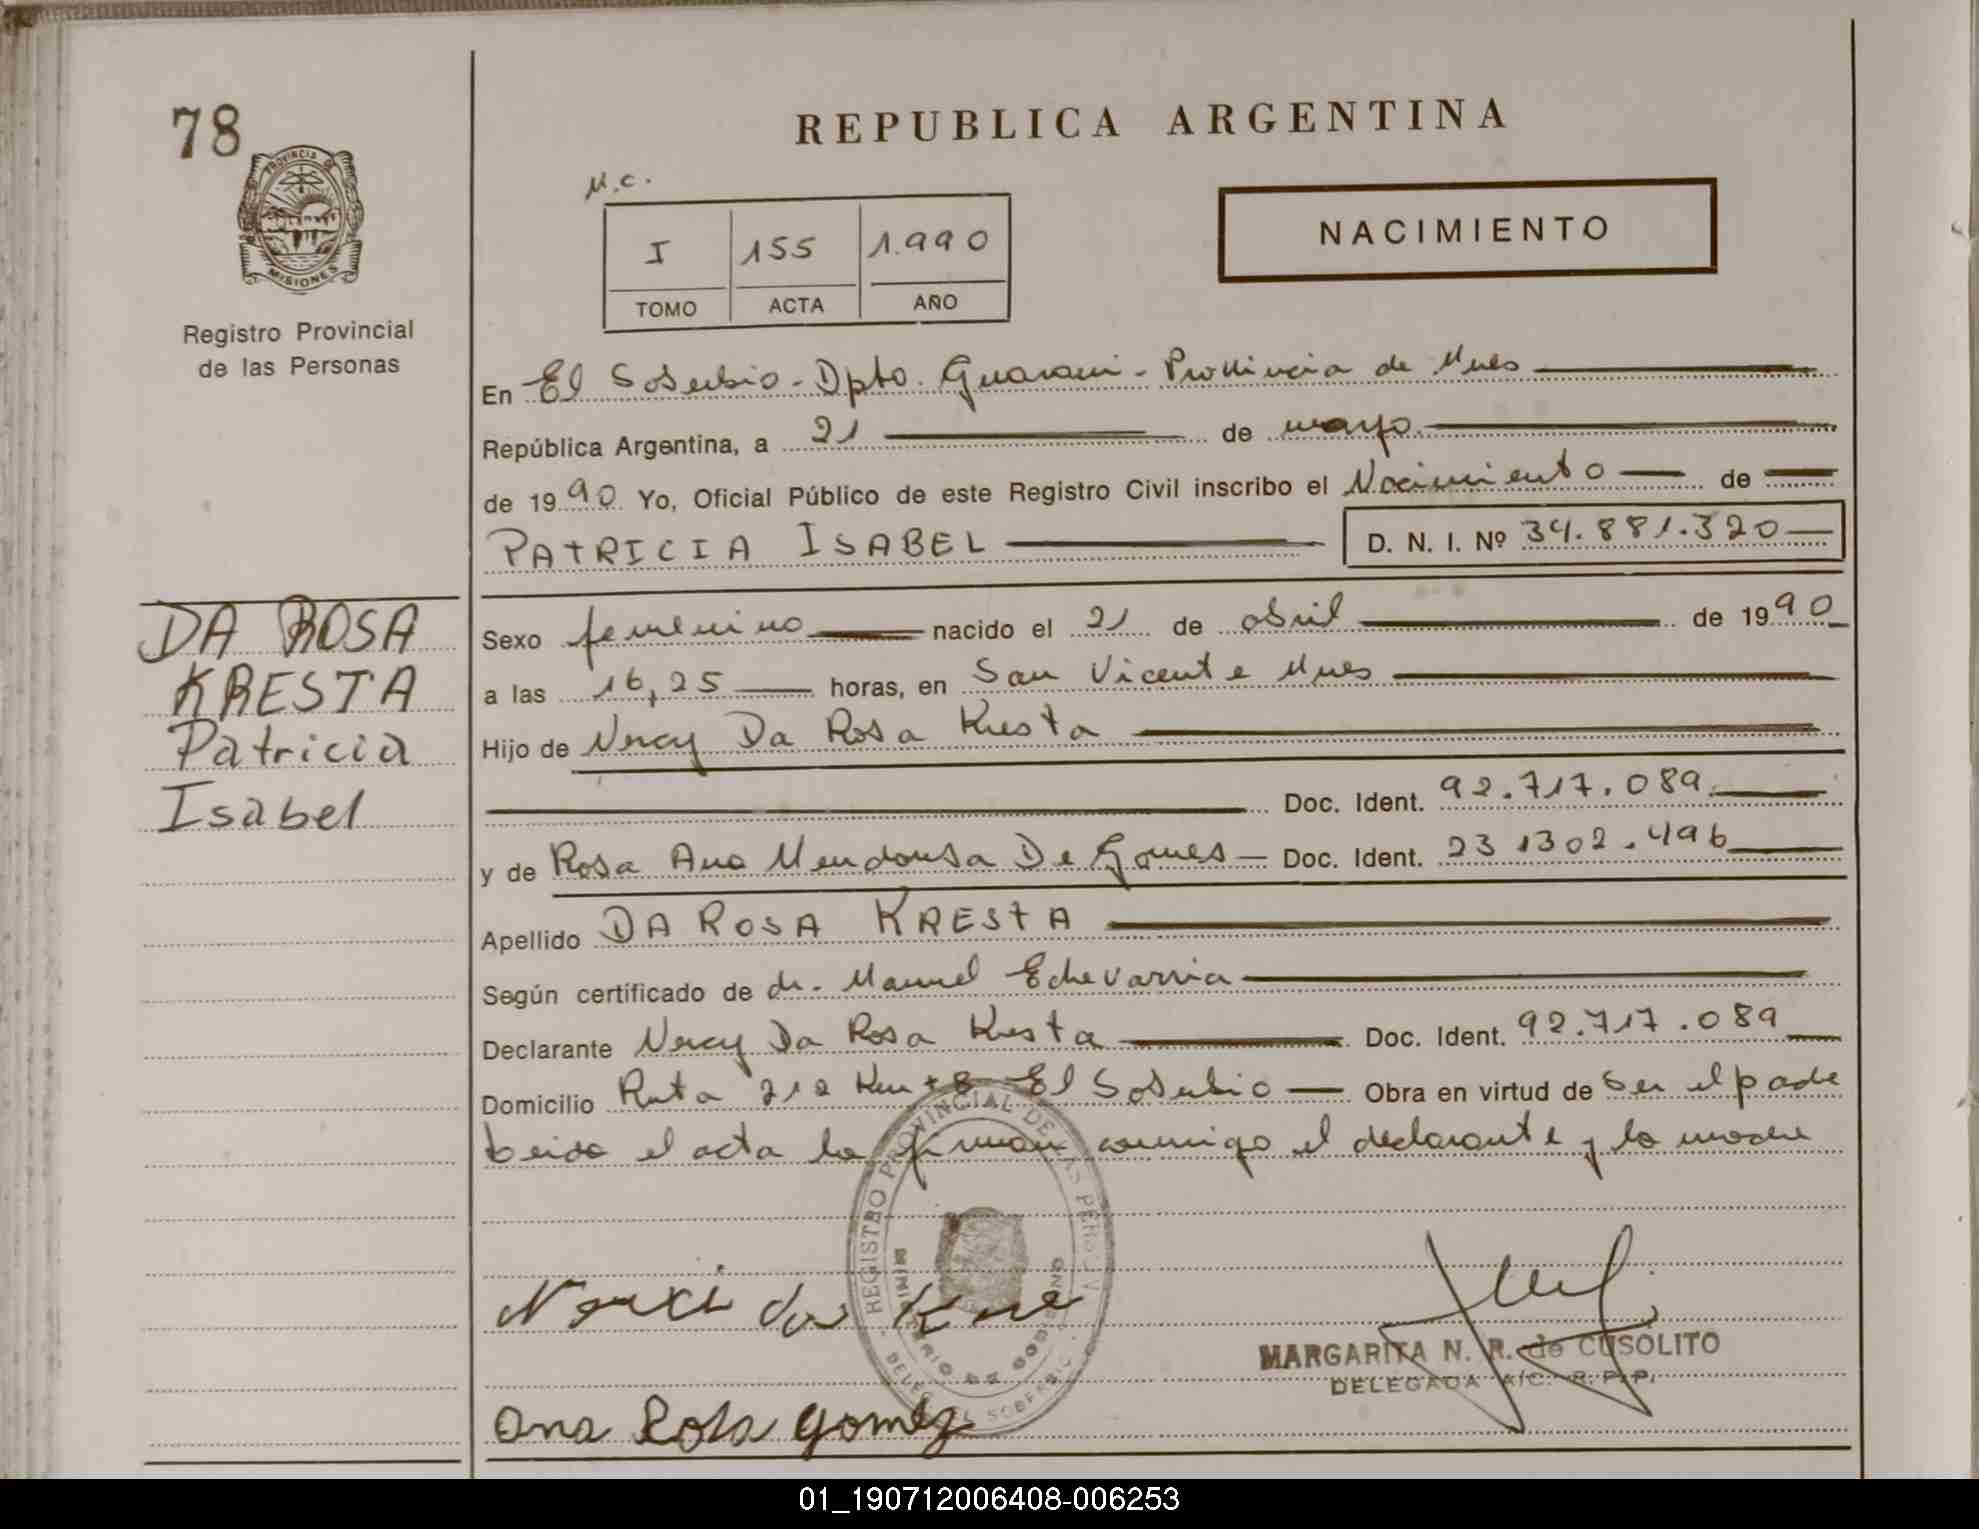 78
PROVINCIA DE
MISIONES
Registro Provincial
de las Personas
REPUBLICA ARGENTINA
M.C.
I 155 1.990
TOMO ACTA AÑO
NACIMIENTO
En El Soberbio - Dpto. Guarani - Provincia de Mnes
República Argentina, a 21 de mayo
de 1990 Yo, Oficial Público de este Registro Civil inscribo el Nacimiento de
PATRICIA ISABEL D. N. I. Nº 34.881.320
DA ROSA
KRESTA
Patricia
Isabel
Sexo femenino nacido el 21 de abril de 1990
a las 16,25 horas, en San Vicente Mnes
Hijo de Nercy Da Rosa Kresta
Doc. Ident. 92.717.089
y de Rosa Ana Mendonsa De Gomes Doc. Ident. 23 1302.496
Apellido DA ROSA KRESTA
Según certificado de dr. Manuel Echevarria
Declarante Nercy Da Rosa Kresta Doc. Ident. 92.717.089
Domicilio Ruta 212 Km +8 El Soberbio Obra en virtud de Ser el padre
Leida el acta la firman conmigo el declarante y la madre
REGISTRO PROVINCIAL DE LAS PERSONAS
MINISTERIO DE GOBIERNO
Ana Rosa Gomez
MARGARITA N. R. de CUSOLITO
DELEGADA A/C. R. P. P.
01_190712006408-006253